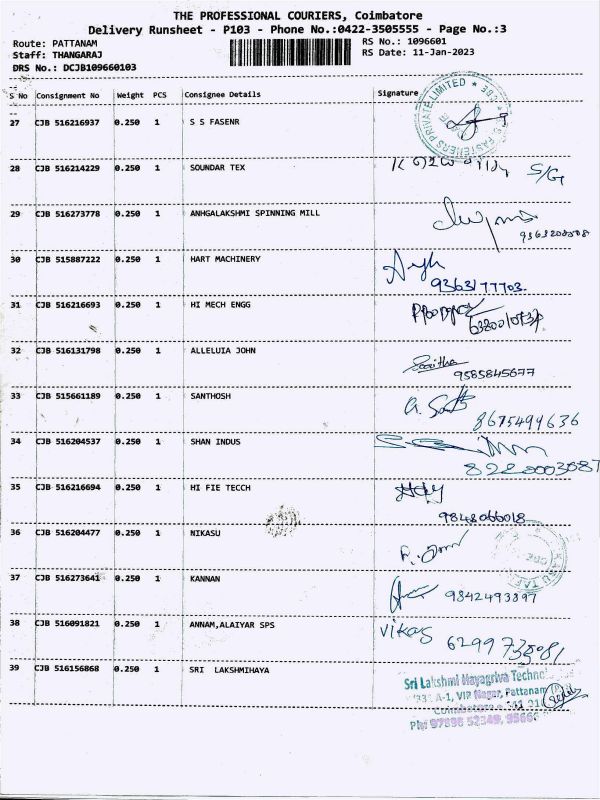 THE PROFESSIONAL COURIERS, Coimbatore
Delivery Runsheet - P103 - Phone No.:0422-3505555 - Page No.:3
Route: PATTANAM RS No.: 1096601
Staff: THANGARAJ RS Date: 11-Jan-2023
DRS No.: DCJB109660103
S No Consignment No Weight PCS Consignee Details Signature
27 CJB 516216937 0.250 1 S S FASENR
PRIVATE LIMITED
28 CJB 516214229 0.250 1 SOUNDAR TEX S/G
29 CJB 516273778 0.250 1 ANHGALAKSHMI SPINNING MILL
30 CJB 515887222 0.250 1 HART MACHINERY
9363177703
31 CJB 516216693 0.250 1 HI MECH ENGG
32 CJB 516131798 0.250 1 ALLELUIA JOHN
9585845677
33 CJB 515661189 0.250 1 SANTHOSH
8675494636
34 CJB 516204537 0.250 1 SHAN INDUS
35 CJB 516216694 0.250 1 HI FIE TECCH
9848066018
36 CJB 516204477 0.250 1 NIKASU
37 CJB 516273641 0.250 1 KANNAN
9842493897
38 CJB 516091821 0.250 1 ANNAM,ALAIYAR SPS
vikas
39 CJB 516156868 0.250 1 SRI LAKSHMIHAYA
Sri Lakshmi Hayagriva
A-1, VIP Nagar, Pattanam